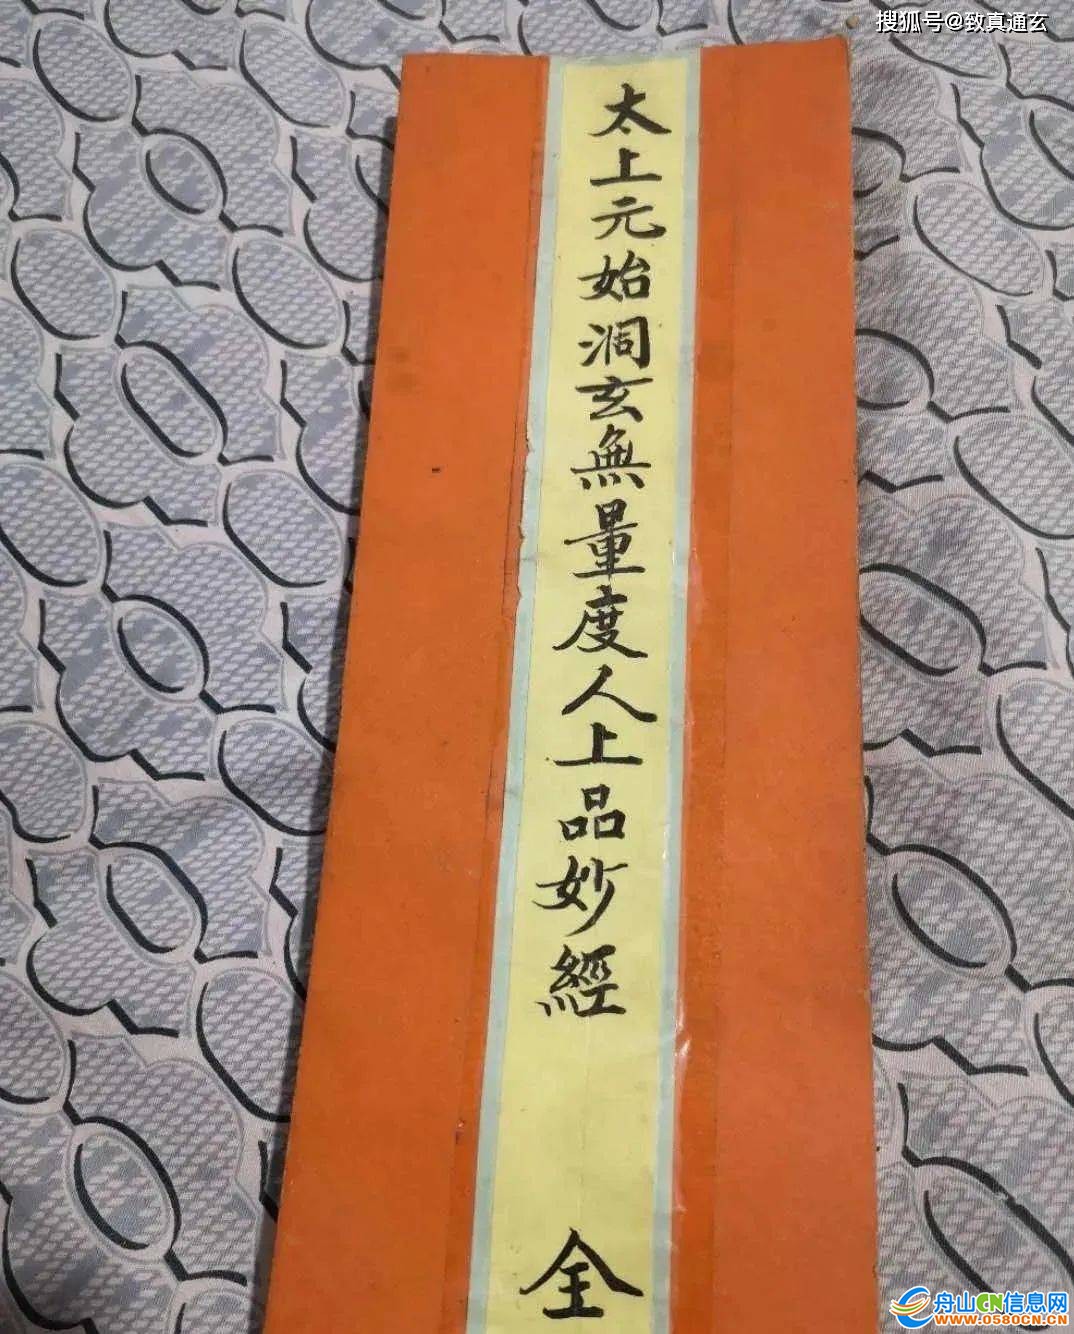 搜狐号@致真通玄
太上元始洞玄無量度人上品妙經
全
舟山CN信息网
www.0580CN.CN